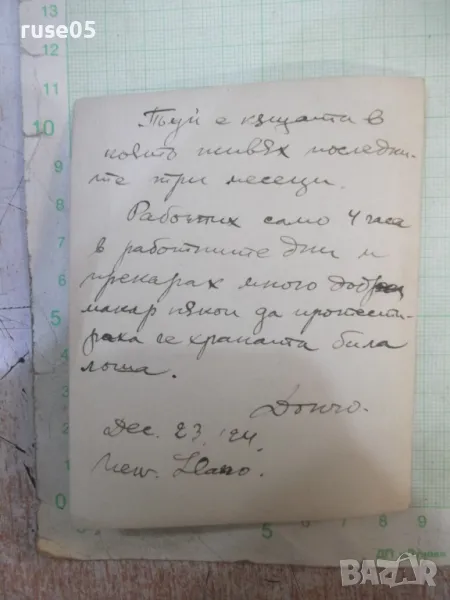 ruse05
Тъуй е къщата в
която живях последни-
те три месеци.
Работих само 4 часа
в работните дни и
прекарах много добре
макар някои да протести-
раха че храната била
лоша.
Дончо.
Dec. 23, '24.
New. Llano.
bazar.bg